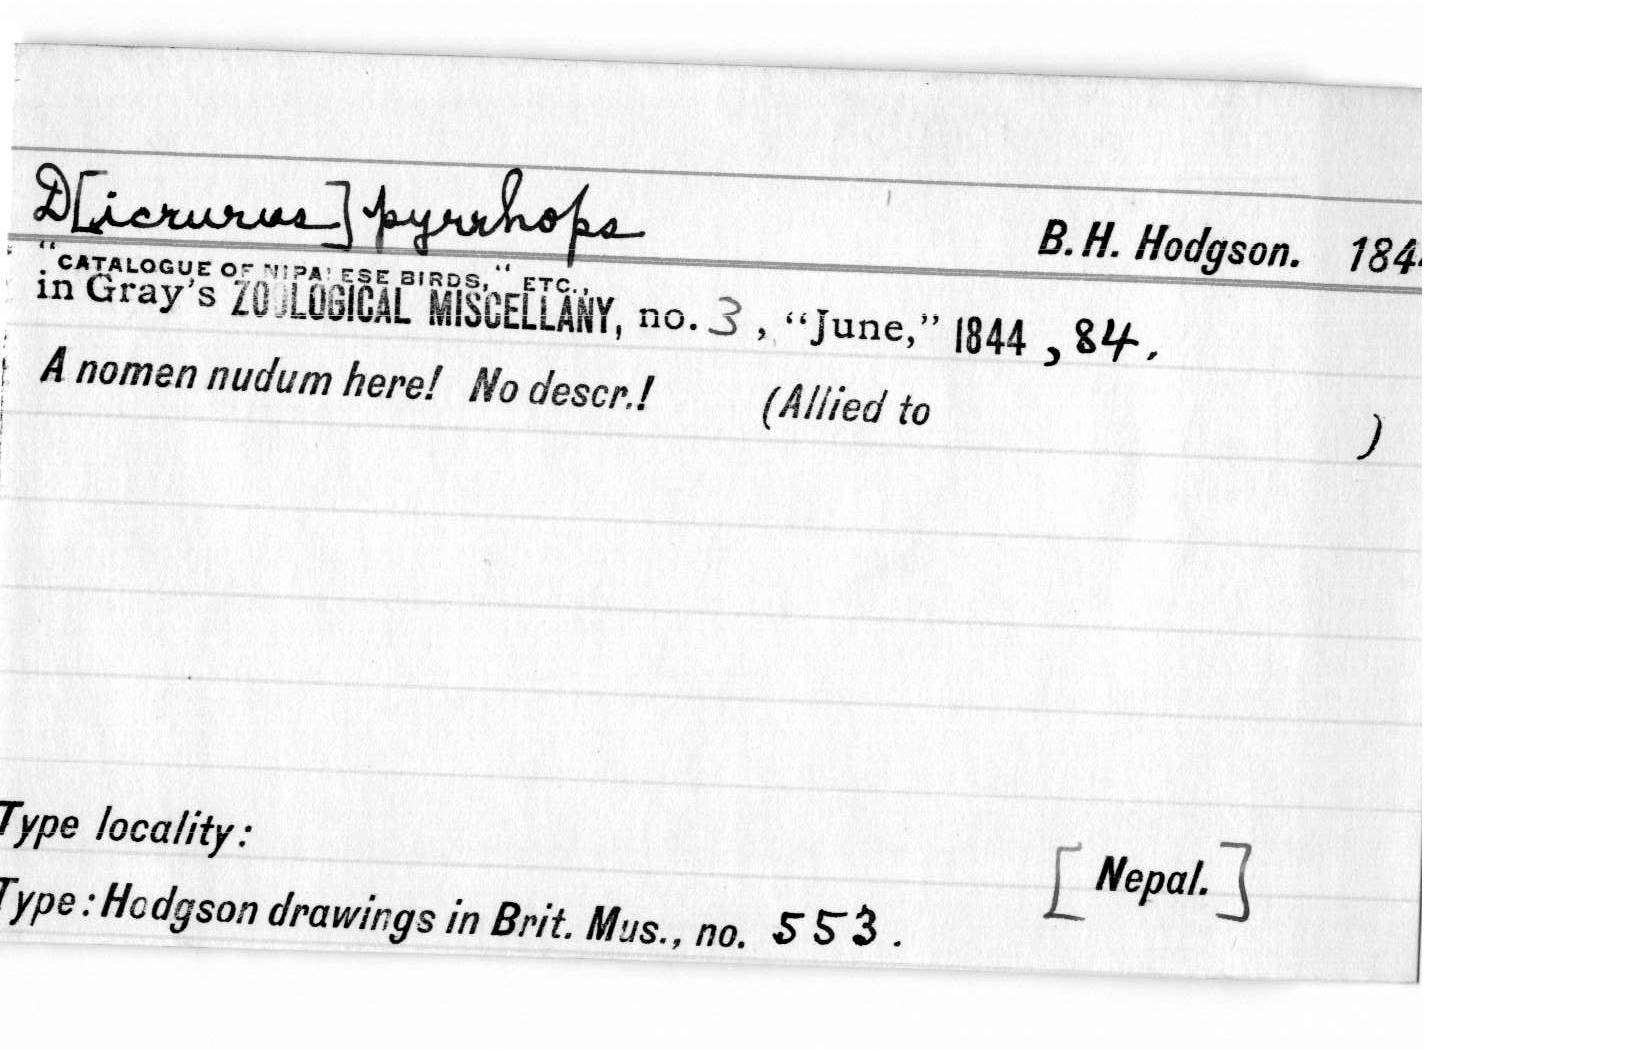 D[icrurus] pyrrhops B. H. Hodgson. 1844
"CATALOGUE OF NIPALESE BIRDS," ETC.,
in Gray's ZOOLOGICAL MISCELLANY, no. 3, "June," 1844, 84.
A nomen nudum here! No descr.! (Allied to )
Type locality: [Nepal.]
Type: Hodgson drawings in Brit. Mus., no. 553.